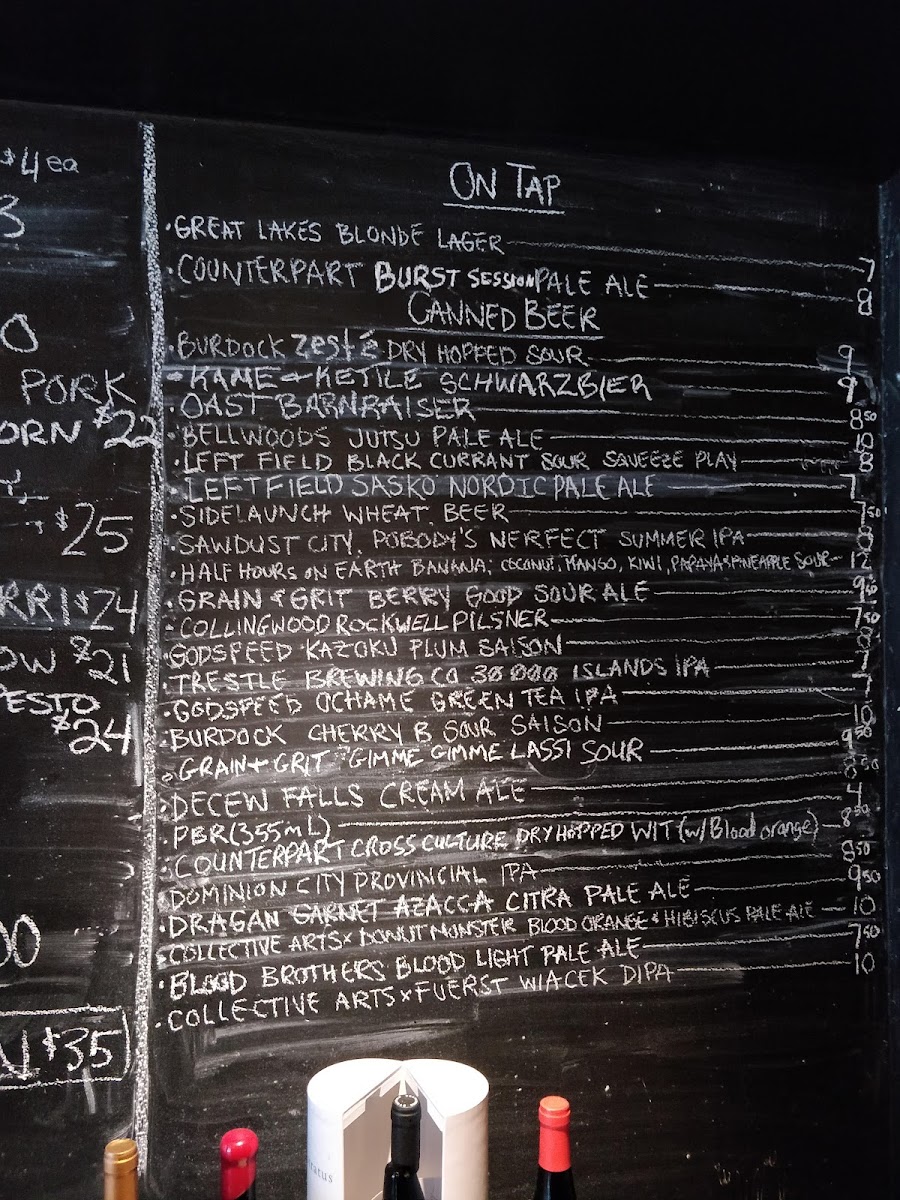 $4ea
3
O
PORK
ORN $22
$25
RRI $24
OW $21
PESTO
$24
00
N $35
ON TAP
·GREAT LAKES BLONDE LAGER 7
·COUNTERPART BURST SESSION PALE ALE 8
CANNED BEER
·BURDOCK zesté DRY HOPPED SOUR 9
·KAME + KETTLE SCHWARZBIER 9
·OAST BARNRAISER 850
·BELLWOODS JUTSU PALE ALE 10
·LEFT FIELD BLACK CURRANT SOUR SQUEEZE PLAY 8
·LEFT FIELD SASKO NORDIC PALE ALE 7
·SIDELAUNCH WHEAT BEER 750
·SAWDUST CITY, POBODY'S NERFECT SUMMER IPA
·HALF HOURS ON EARTH BANANA, COCONUT, MANGO, KIWI, PAPAYA & PINEAPPLE SOUR 12
·GRAIN & GRIT BERRY GOOD SOUR ALE 950
·COLLINGWOOD ROCKWELL PILSNER 750
·GODSPEED KAZOKU PLUM SAISON 8
·TRESTLE BREWING CO 30 000 ISLANDS IPA 7
·GODSPEED OCHAME GREEN TEA IPA 7
·BURDOCK CHERRY B SOUR SAISON 10
·GRAIN + GRIT "GIMME GIMME LASSI SOUR 950
·DECEW FALLS CREAM ALE 850
·PBR (355mL) 4
·COUNTERPART CROSS CULTURE DRY HOPPED WIT (w/Blood orange) 850
·DOMINION CITY PROVINCIAL IPA 850
·DRAGAN GARNET AZACCA CITRA PALE ALE 950
·COLLECTIVE ARTS x DONUT MONSTER BLOOD ORANGE & HIBISCUS PALE ALE 10
·BLOOD BROTHERS BLOOD LIGHT PALE ALE 750
·COLLECTIVE ARTS x FUERST WIACEK DIPA 10